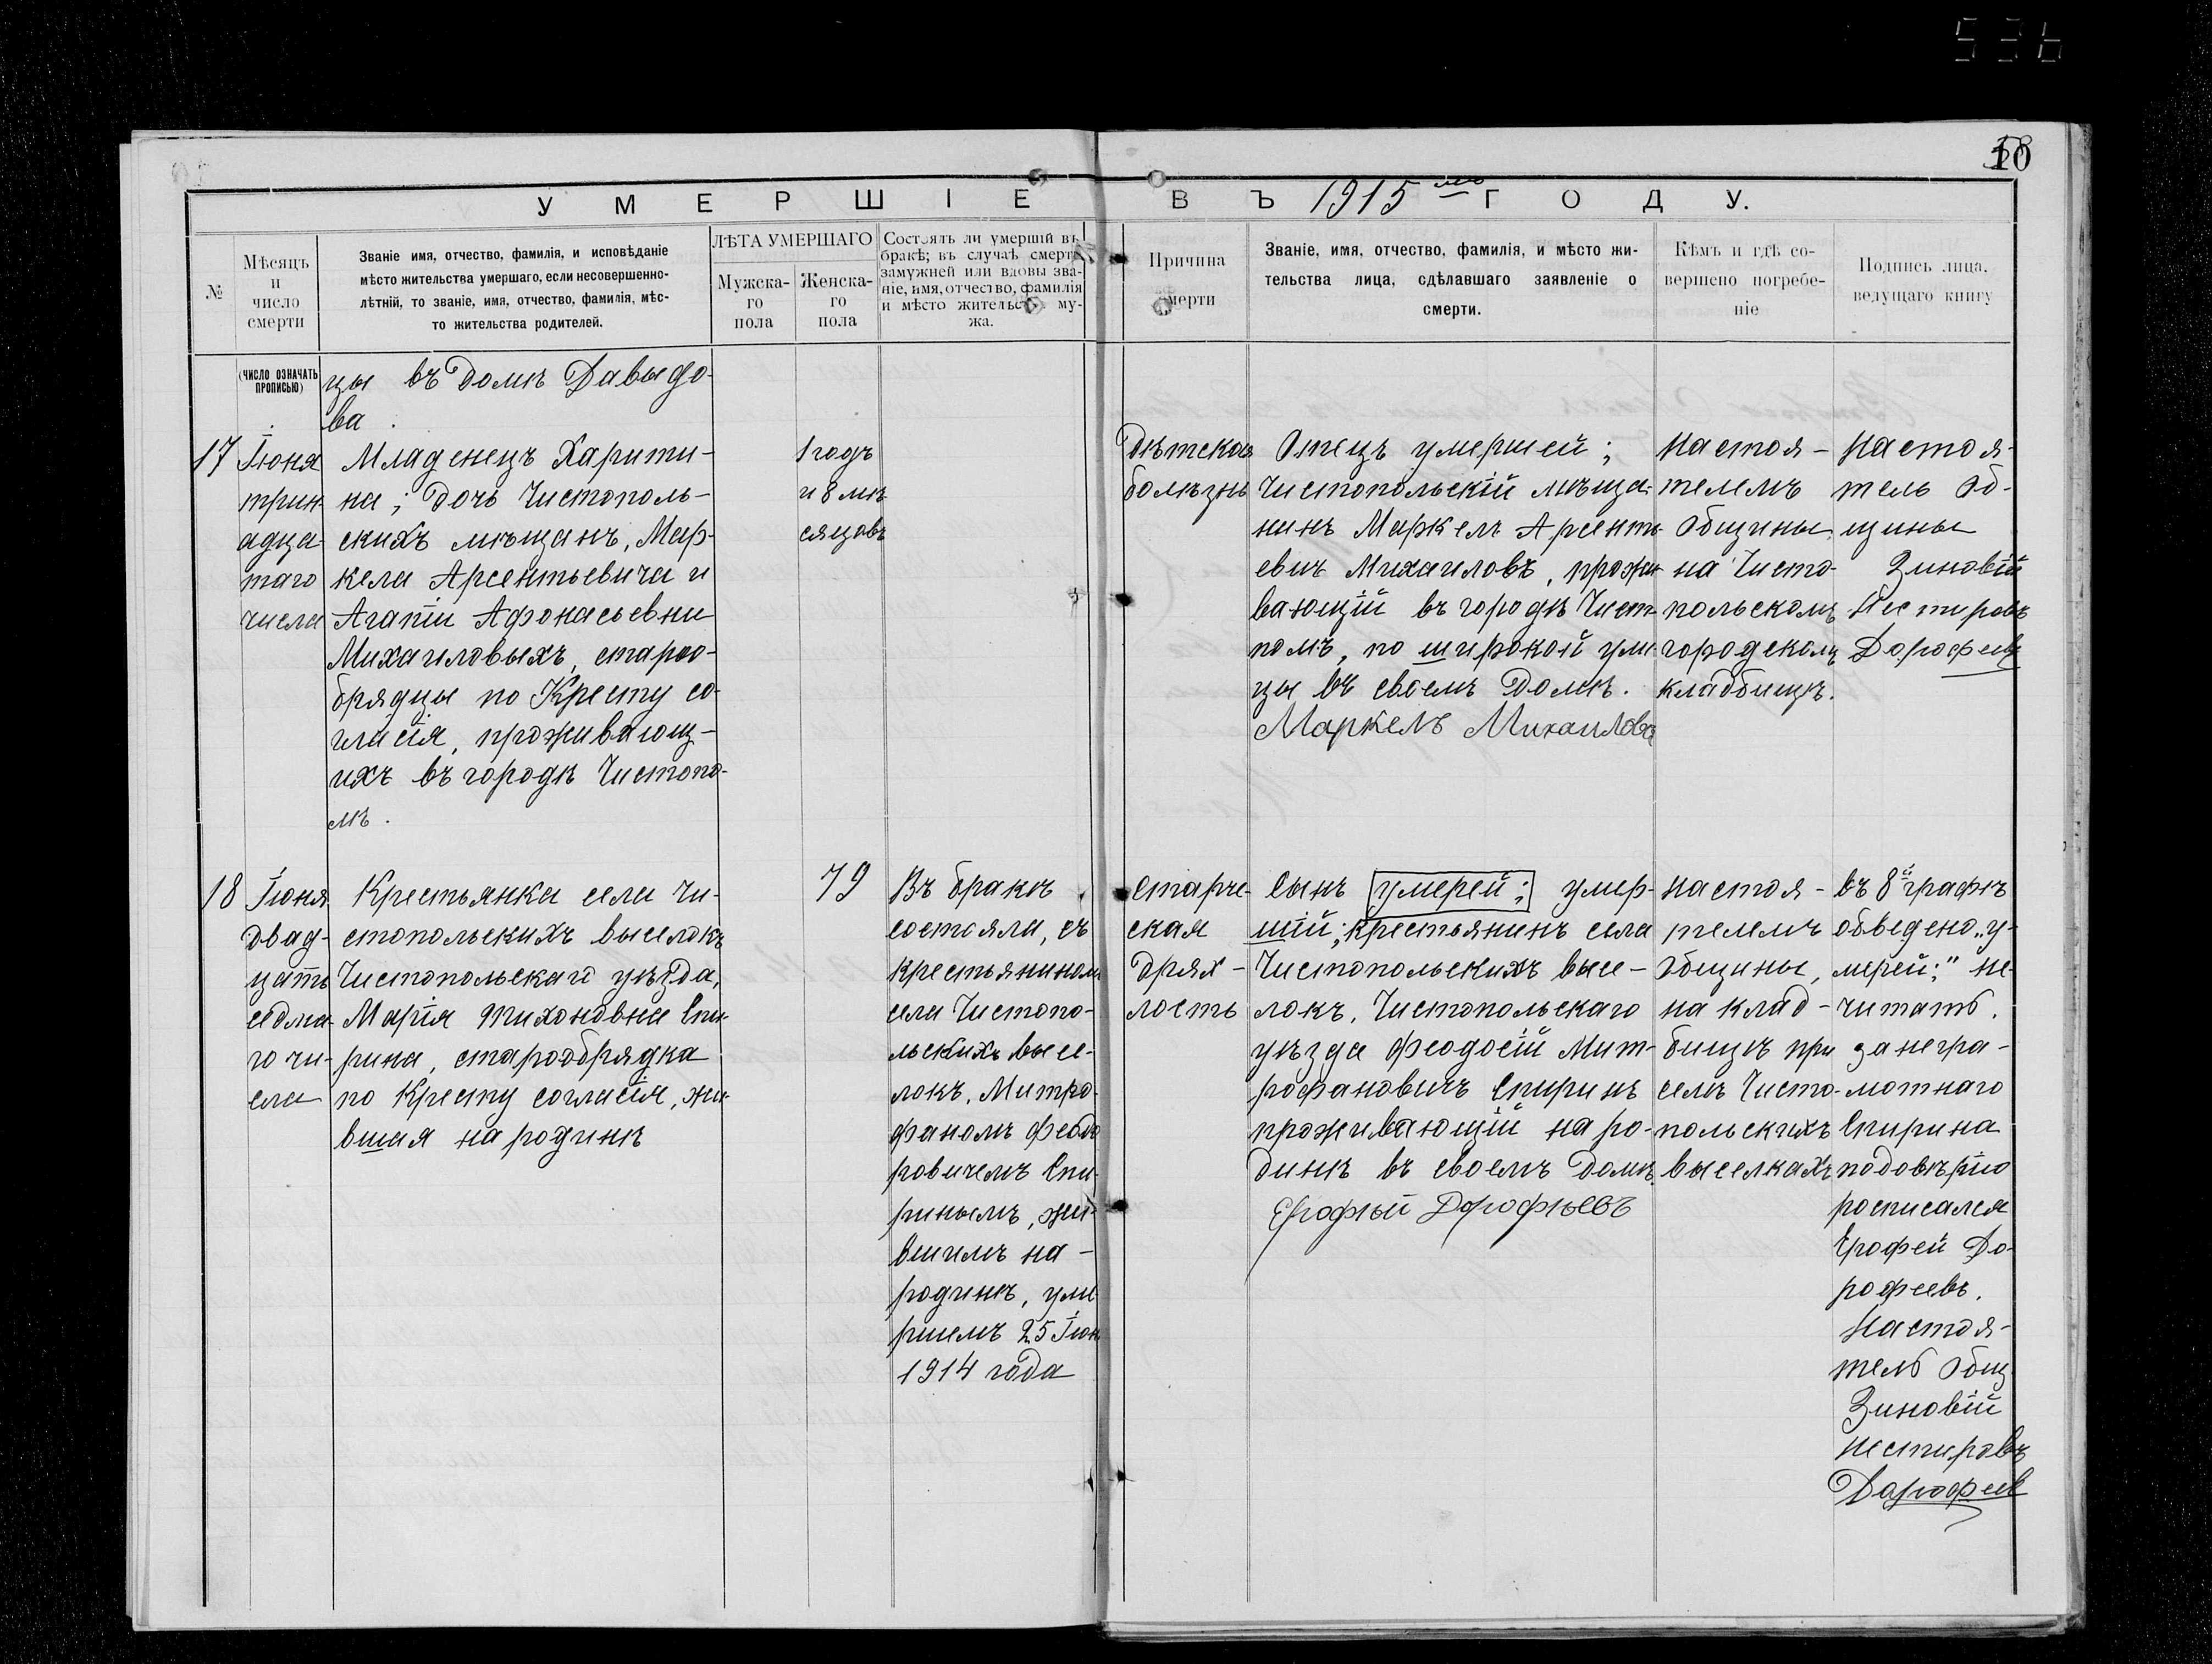 536
10
УМЕРШІЕ
ВЪ 1915 ГОДУ.
№
Мѣсяцъ
и
число
смерти
Званіе имя, отчество, фамилія, и исповѣданіе
мѣсто жительства умершаго, если несовершенно-
лѣтній, то званіе, имя, отчество, фамилія, мѣс-
то жительства родителей.
ЛѢТА УМЕРШАГО
Мужска-
го
пола
Женска-
го
пола
Состоялъ ли умершій въ
бракѣ; въ случаѣ смерти
замужней или вдовы зва-
ніе, имя, отчество, фамилія
и мѣсто жительст му-
жа.
Причина
смерти
Званіе, имя, отчество, фамилія, и мѣсто жи-
тельства лица, сдѣлавшаго заявленіе о
смерти.
Кѣмъ и гдѣ со-
вершено погребе-
ніе
Подпись лица,
ведущаго книгу
(ЧИСЛО ОЗНАЧАТЬ
ПРОПИСЬЮ)
цы въ домѣ Давыдо-
ва.
17
Іюня
трин-
адца-
таго
числа
Младенецъ Харити-
на; дочь Чистополь-
скихъ мѣщанъ, Мар-
кела Арсентьевича и
Агапіи Афонасьевни
Михаиловыхъ, старо-
брядцы по Кресту со-
гласія, проживающ-
ихъ въ городѣ Чистопо-
лѣ.
1 годъ
и 8 мѣ
сяцовъ
Дѣтская
болѣзнь
Отецъ умершей;
Чистопольскій мѣща-
нинъ Маркелъ Арсенть
евич Михаиловъ, прожи
вающій въ городѣ Чист
полѣ, по широкой ули
цы въ своемъ домѣ.
Маркелъ Михаиловъ
Настоя-
телемъ
Общины,
на Чисто-
польскомъ
городскомъ
кладбищѣ.
Настоя-
тель Об-
щины
Зиновій
Нестировъ
Дорофеевъ
18
Іюня
двад-
цать
седма-
го чи-
сла
Крестьянка села Чи-
стопольскихъ выселокъ
Чистопольскаго уѣзда,
Марія Тихоновна Спи-
рина, старообрядка
по Кресту согласія, жи-
вшая на родинѣ
79
Въ бракѣ
состояла, съ
крестьяниномъ
села Чистопо-
льскихъ высе-
локъ, Митро-
фаномъ Федо
ровичемъ Спи-
ринымъ, жи-
вшимъ на-
родинѣ, уме
ршемъ 25 Іюн
1914 года
Старче-
ская
дрях-
лость
Сынъ умерей; умер-
шій; крестьянинъ села
Чистопольскихъ высе-
локъ, Чистопольскаго
уѣзда Феодосій Мит-
рофановичъ Спиринъ
проживающій на ро-
динѣ въ своемъ домѣ.
Ерофѣй Дорофѣевъ
Настоя-
телемъ
Общины,
на клад-
бищѣ при
селѣ Чисто-
польскихъ
выселкахъ
въ 8й графѣ
обведено „у-
мерей;" не-
читать.
за негра-
мотнаго
Спирина
подовѣрію
росписался
Ерофей До-
рофеевъ.
Настоя-
тель Общ
Зиновій
Нестировъ
Дарофеев